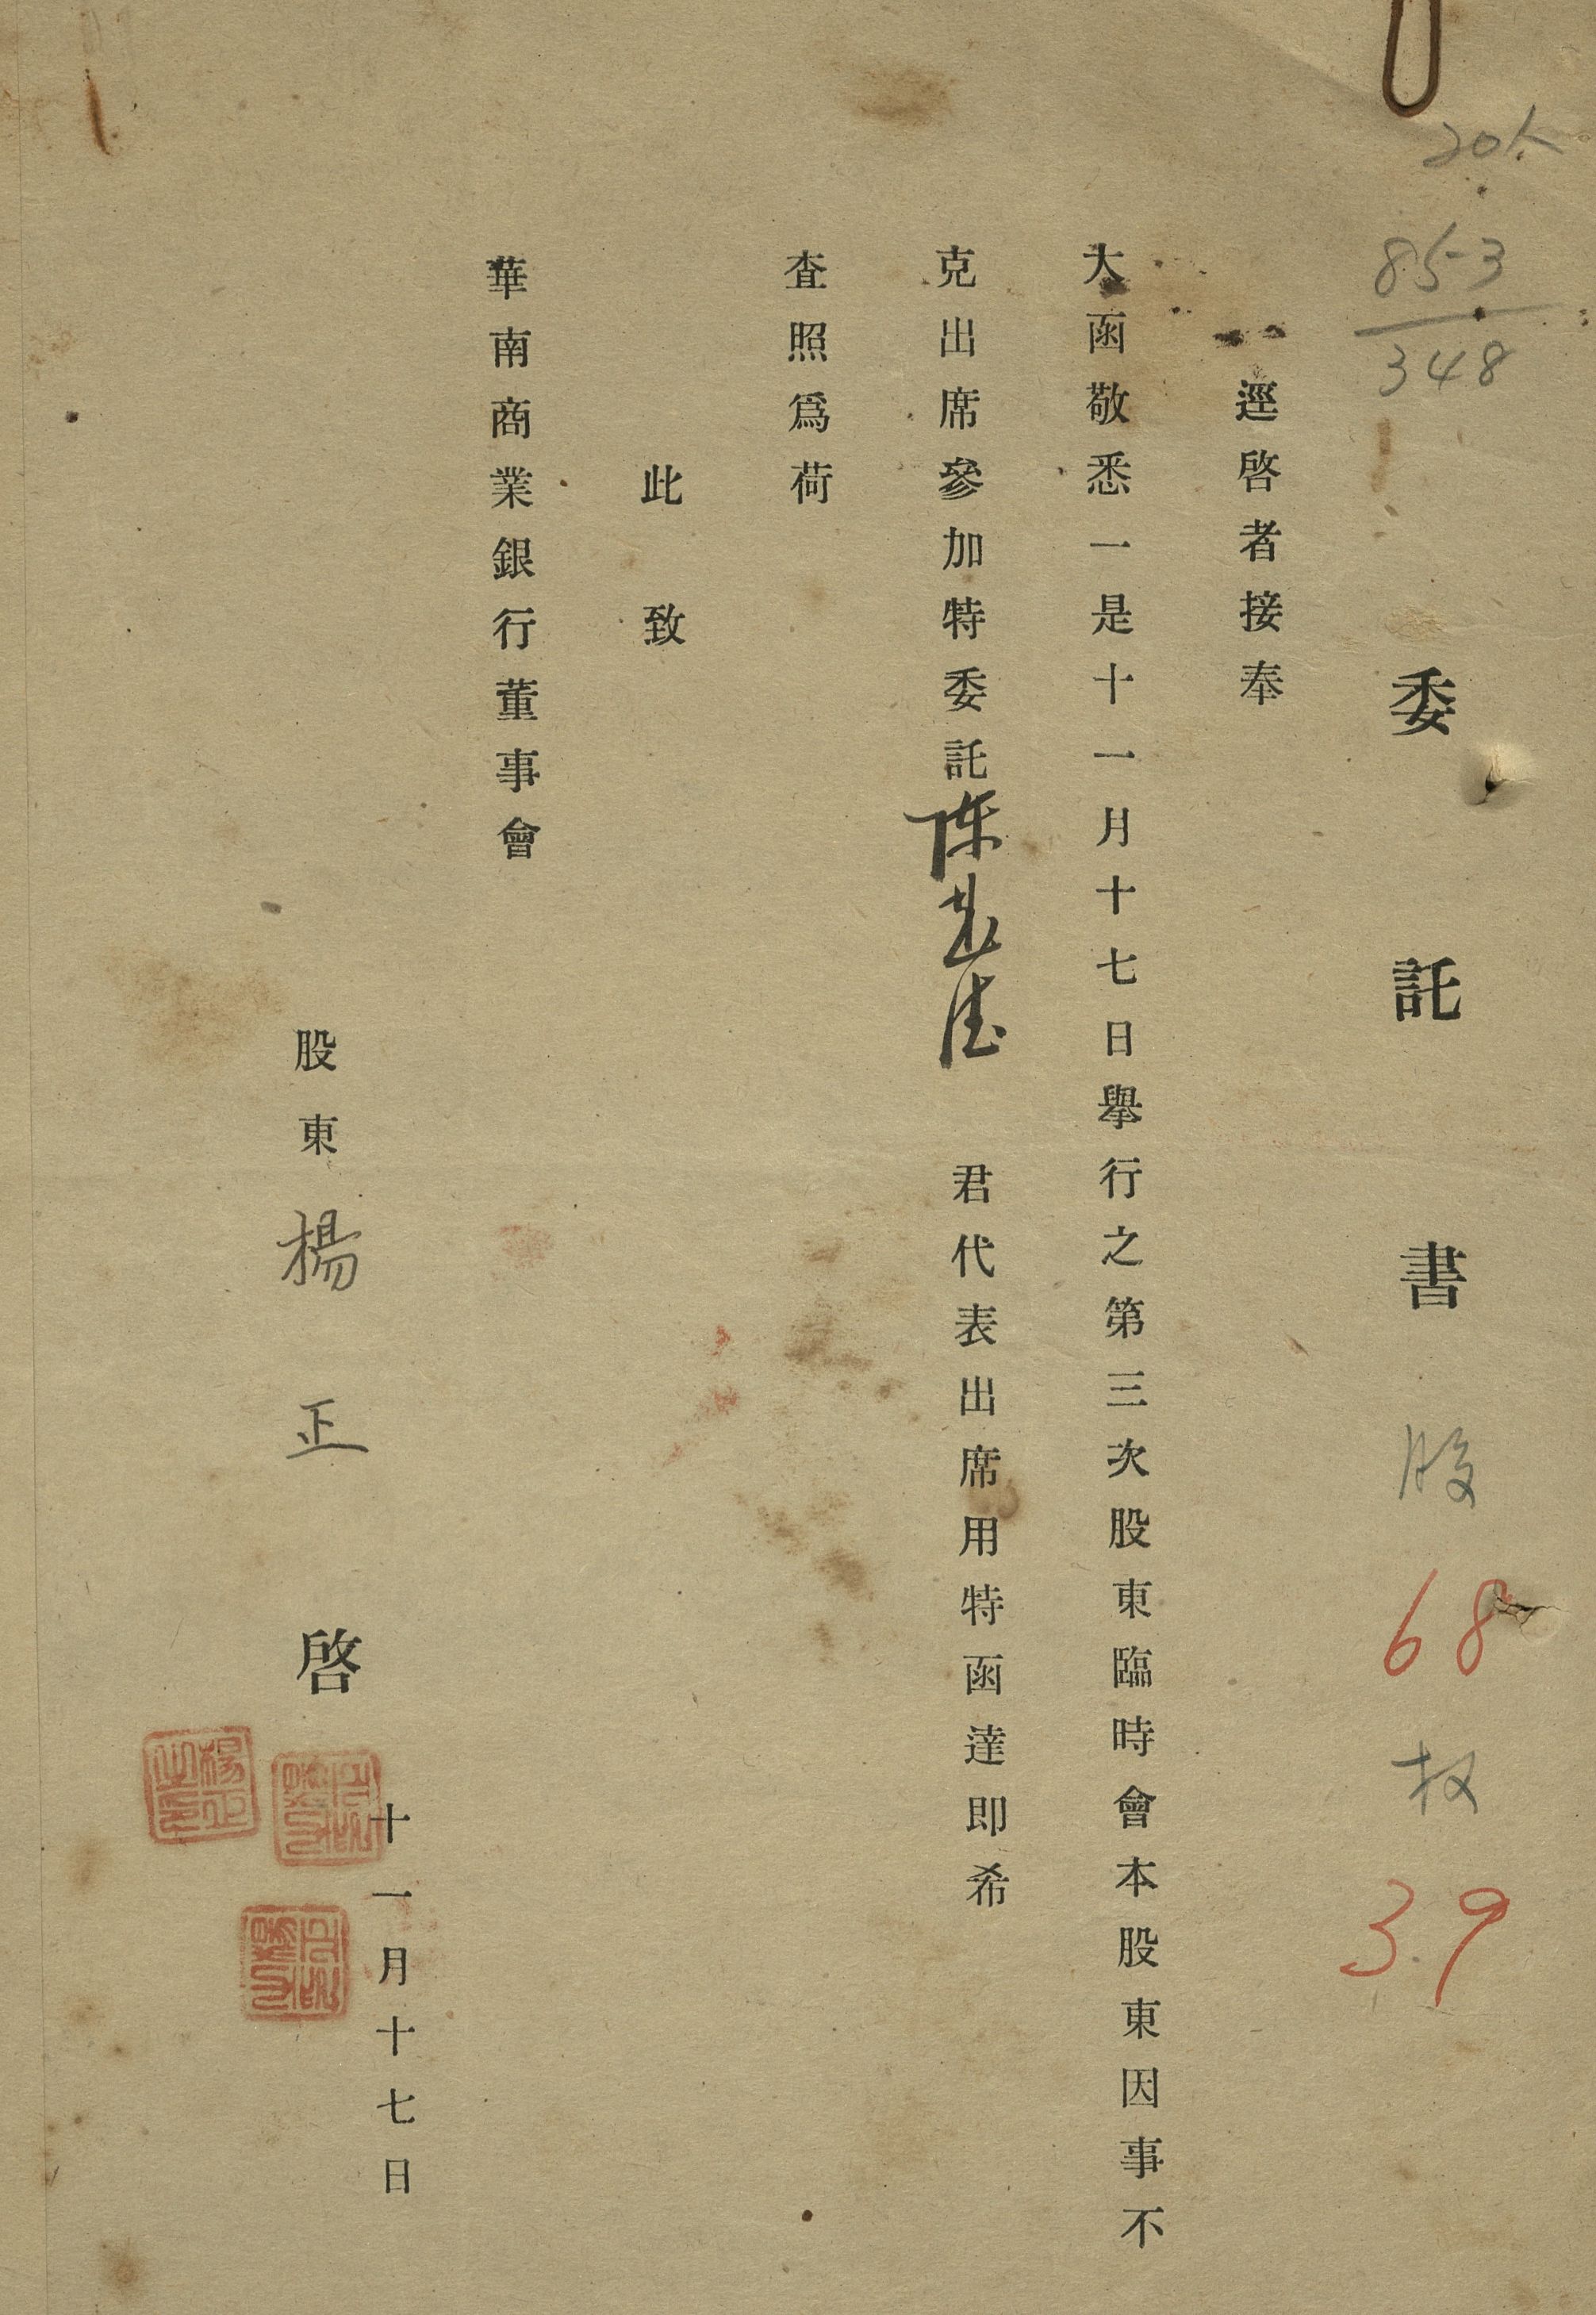 20人
853
348
委託書 股 68 权 39
逕啓者接奉
大函敬悉一是十一月十七日舉行之第三次股東臨時會本股東因事不
克出席參加特委託陳 君代表出席用特函達即希
查照爲荷
此致
華南商業銀行董事會
十一月十七日
股東 楊正 啓
楊正之印